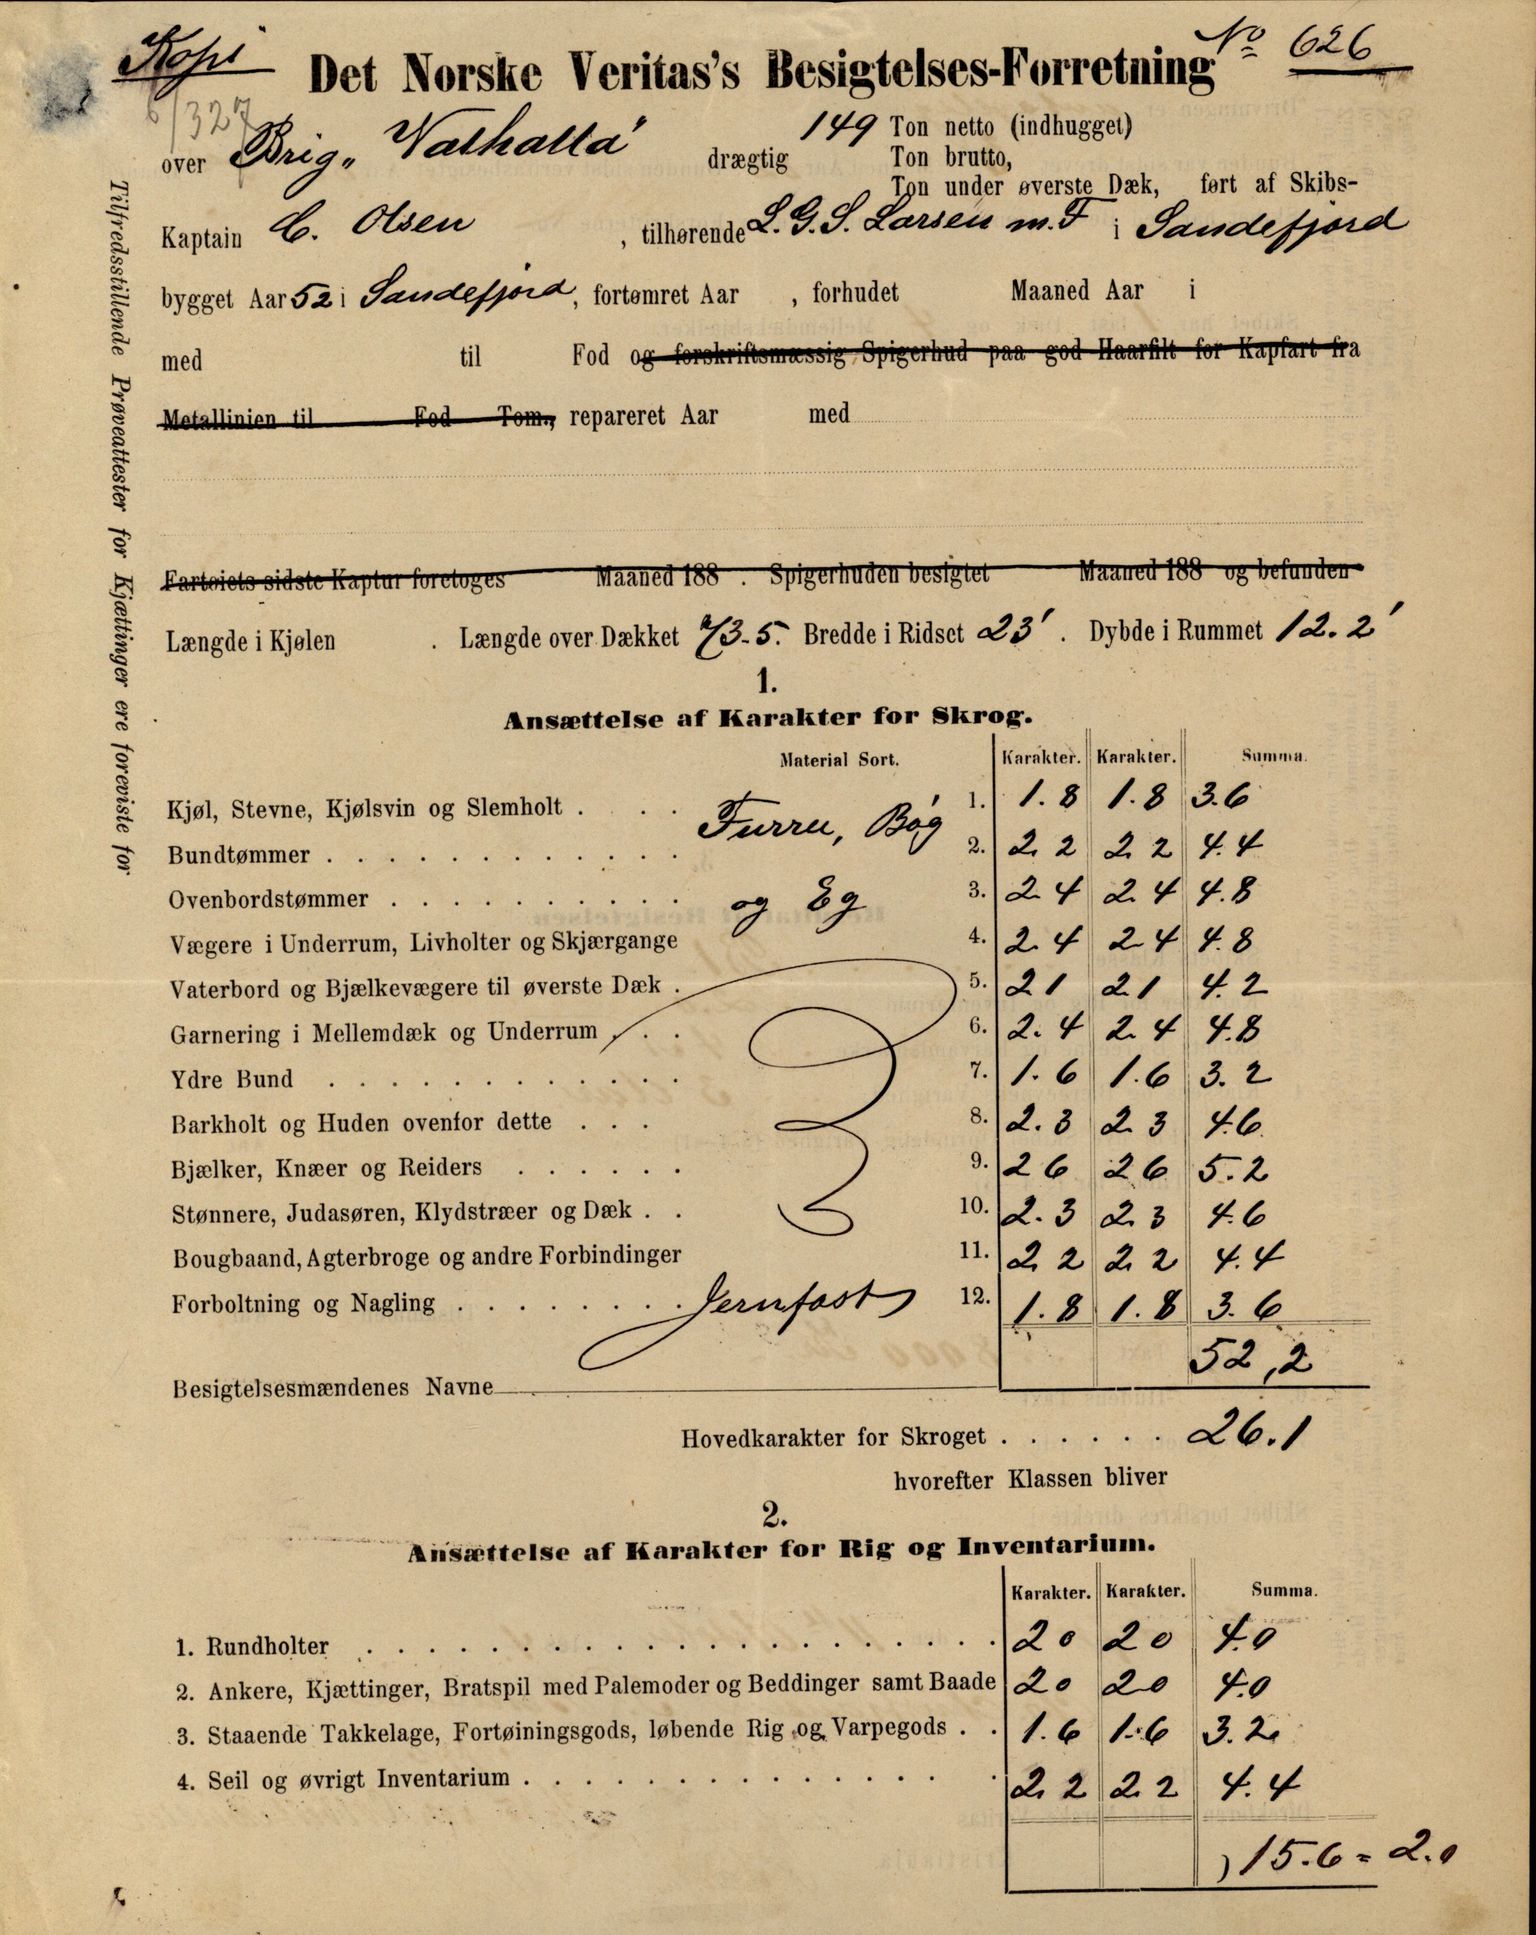 Kopi
Det Norske Veritas's Besigtelses-Forretning No 626
6/327
over Brig „Valhalla" drægtig 149 Ton netto (indhugget)
Ton brutto,
Ton under øverste Dæk, ført af Skibs-
Kaptain C. Olsen , tilhørende L. G. S. Larsen m. F i Sandefjord
bygget Aar 52 i Sandefjord, fortømret Aar , forhudet Maaned Aar i
med til Fod og forskriftsmæssig Spigerhud paa god Haarfilt for Kapfart fra
Metallinien til Fod Tom., repareret Aar med
Fartøiets sidste Kaptur foretoges Maaned 188 . Spigerhuden besigtet Maaned 188 og befunden
Længde i Kjølen . Længde over Dækket 73.5. Bredde i Ridset 23' . Dybde i Rummet 12.2'
Tilfredsstillende Prøveattester for Kjættinger ere foreviste for
1.
Ansættelse af Karakter for Skrog.
Material Sort. Karakter. Karakter. Summa.
Kjøl, Stevne, Kjølsvin og Slemholt . . . Furru, Bøg 1. 1.8 1.8 3.6
Bundtømmer . . . . . . . . . . . . 2. 2.2 2.2 4.4
Ovenbordstømmer . . . . . . . . . . og Eg 3. 2.4 2.4 4.8
Vægere i Underrum, Livholter og Skjærgange 4. 2.4 2.4 4.8
Vaterbord og Bjælkevægere til øverste Dæk . 5. 2 1 2 1 4.2
Garnering i Mellemdæk og Underrum . . . 6. 2.4 2.4 4.8
Ydre Bund . . . . . . . . . . . . 7. 1.6 1.6 3.2
Barkholt og Huden ovenfor dette . . . 8. 2.3 2.3 4.6
Bjælker, Knæer og Reiders . . . . . . 9. 2 6 2 6 5.2
Stønnere, Judasøren, Klydstræer og Dæk . . 10. 2.3 2.3 4.6
Bougbaand, Agterbroge og andre Forbindinger 11. 2.2 2.2 4.4
Forboltning og Nagling . . . . . . . . Jernfast 12. 1.8 1.8 3.6
52,2
Besigtelsesmændenes Navne
Hovedkarakter for Skroget . . . . . . 26.1
hvorefter Klassen bliver
2.
Ansættelse af Karakter for Rig og Inventarium.
Karakter. Karakter. Summa.
1. Rundholter . . . . . . . . . . . . . . . . . . . . . 2 0 2 0 4.0
2. Ankere, Kjættinger, Bratspil med Palemoder og Beddinger samt Baade 2 0 2 0 4.0
3. Staaende Takkelage, Fortøiningsgods, løbende Rig og Varpegods . . 1.6 1.6 3.2
4. Seil og øvrigt Inventarium . . . . . . . . . . . . . . . 2.2 2.2 4.4
15.6 = 2.0